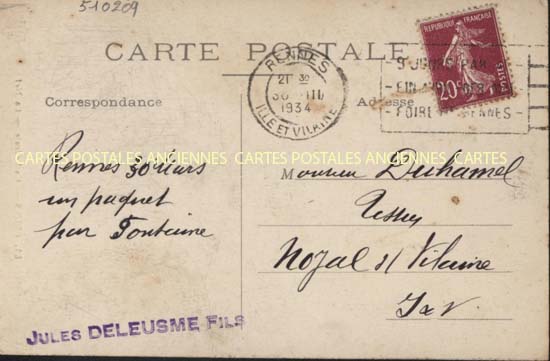 510209
CARTE POSTALE
RÉPUBLIQUE FRANÇAISE
20c
POSTES
RENNES
21 30
30 III
1934
ILLE ET VILAINE
9 JOURS PAR
FIN
FOIRE DE RENNES
Correspondance
Adresse
CARTES POSTALES ANCIENNES CARTES POSTALES ANCIENNES CARTES POSTALES ANCIENNES
Rennes 30 Mars
un paquet
par Fontaine
Monsieur Duhamel
Noyal s/ Vilaine
I & V.
JULES DELEUSME FILS